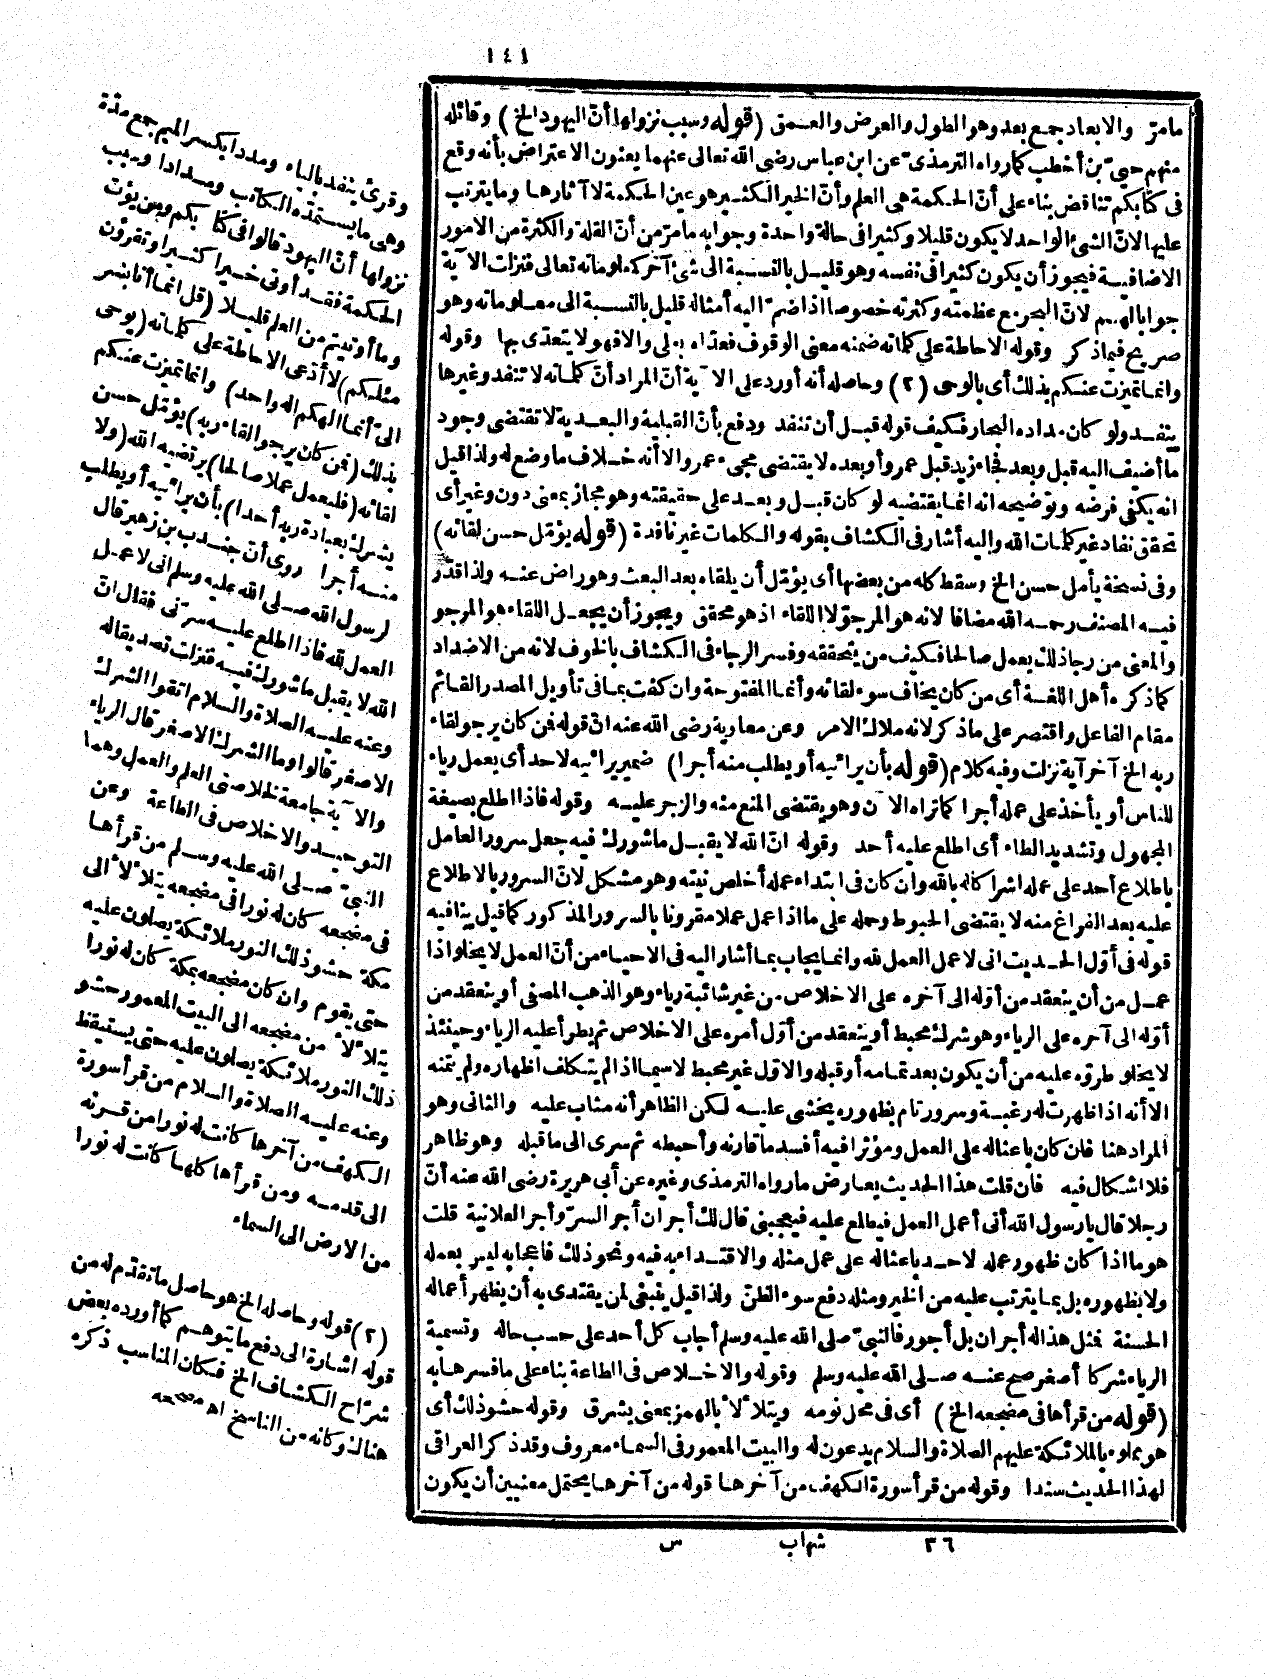 ١٤١
مامرّ والابعاد جمع بعد وهو الطول والعرض والعمق (قوله وسبب نزولها أنّ اليهود الخ) وقائله
منهم حييّ بن أخطب كما رواه الترمذيّ عن ابن عباس رضى الله تعالى عنهما يعنون الاعتراض بأنه وقع
فى كتابكم تناقض بناء على أنّ الحكمة هى العلم وأنّ الخير الكثير هو عين الحكمة لا آثارها وما يترتب
عليها الانّ الشئ الواحد لا يكون قليلا وكثيرا فى حالة واحدة وجوابه مامرّ من أنّ القلة والكثرة من الامور
الاضافية فيجوز أن يكون كثيرا فى نفسه وهو قليل بالنسبة الى شئ آخر كمعلوماته تعالى فنزلت الآية
جوابا لهم لانّ البحر مع عظمته وكثرته خصوصا اذا ضمّ اليه أمثاله قليل بالنسبة الى معلوماته وهو
صريح فيما ذكر وقوله الاحاطة على كلماته ضمنه معنى الوقوف فعدّاه بعلى والا فهو لا يتعدّى بها وقوله
وانما تميزت عنكم بذلك أى بالوحى (٢) وحاصله أنه أورد على الآية أنّ المراد أنّ كلماته لا تنفد وغيرها
ينفد ولو كان مداده البحار فكيف قوله قبل أن تنفد ودفع بأنّ القبلية والبعدية لا تقتضى وجود
ما أضيف اليه قبل وبعد فجاء زيد قبل عمرو أو بعده لا يقتضى مجىء عمرو الا أنه خلاف ما وضع له ولذا قيل
انه يكفى فرضه وتوضيحه انه انما يقتضيه لو كان قبل وبعد على حقيقته وهو مجاز بمعنى دون وغير أى
تحقق نفاد غير كلمات الله واليه أشار فى الكشاف بقوله والكلمات غير نافدة (قوله يؤمّل حسن لقائه)
وفى نسخة يأمل حسن الخ وسقط كله من بعضها أى يؤمّل أن يلقاه بعد البعث وهو راض عنه ولذا قدر
فيه المصنف رحمه الله مضافا لانه هو المرجوّ لا اللقاء اذ هو محقق ويجوز أن يجعل اللقاء هو المرجو
والمعنى من رجا ذلك يعمل صالحا فكيف من يتحققه وفسر الرجاء فى الكشاف بالخوف لانه من الاضداد
كما ذكره أهل اللغة أى من كان يخاف سوء لقائه وأنما المفتوحة وان كفت بما فى تأويل المصدر القائم
مقام الفاعل واقتصر على ما ذكر لانه ملاك الامر وعن معاوية رضى الله عنه انّ قوله فمن كان يرجو لقاء
ربه الخ آخر آية نزلت وفيه كلام (قوله بأن يرائيه أو يطلب منه أجرا) ضمير يرائيه لاحد أى يعمل رياء
للناس أو يأخذ على عمله أجرا كما تراه الآن وهو يقتضى المنع منه والزجر عليه وقوله فاذا اطلع بصيغة
المجهول وتشديد الطاء أى اطلع عليه أحد وقوله انّ الله لا يقبل ما شورك فيه جعل سرور العامل
باطلاع أحد على عمله اشراكا له بالله وان كان فى ابتداء عمله أخلص نيته وهو مشكل لانّ السرور بالاطلاع
عليه بعد الفراغ منه لا يقتضى الحبوط وحمله على ما اذا عمل عملا مقرونا بالسرور المذكور كما قيل ينافيه
قوله فى أوّل الحديث انى لاعمل العمل لله وانما يجاب بما أشار اليه فى الاحياء من أنّ العمل لا يخلو اذا
عمل من أن ينعقد من أوّله الى آخره على الاخلاص من غير شائبة رياء وهو الذهب المصفى أو ينعقد من
أوّله الى آخره على الرياء وهو شرك محبط أو ينعقد من أوّل أمره على الاخلاص ثم يطرأ عليه الرياء وحينئذ
لا يخلو طروّه عليه من أن يكون بعد تمامه أو قبله والاوّل غير محبط لاسيما اذا لم يتكلف اظهاره ولم يتمنه
الا أنه اذا ظهرت له رغبة وسرور تام بظهوره يخشى عليه لكن الظاهر أنه مثاب عليه والثانى وهو
المراد هنا فان كان باعثا له على العمل ومؤثرا فيه أفسد ما قارنه وأحبطه ثم سرى الى ما قبله وهو ظاهر
فلا اشكال فيه فان قلت هذا الحديث يعارض ما رواه الترمذى وغيره عن أبى هريرة رضى الله عنه أنّ
رجلا قال يا رسول الله أنى أعمل العمل فيطلع عليه فيعجبنى قال لك أجران أجر السرّ وأجر العلانية قلت
هو ما اذا كان ظهور عمله لاحد باعثا له على عمل مثله والاقتداء به فيه ونحو ذلك فاعجابه ليس بعمله
ولا بظهوره بل بما يترتب عليه من الخير ومثله دفع سوء الظنّ ولذا قيل ينبغى لمن يقتدى به أن يظهر أعماله
الحسنة فمثل هذا له أجران بل أجور فالنبىّ صلى الله عليه وسلم أجاب كل أحد على حسب حاله وتسمية
الرياء شركا أصغر صح عنه صلى الله عليه وسلم وقوله والاخلاص فى الطاعة بناء على ما فسرها به
(قوله من قرأها فى مضجعه الخ) أى فى محل نومه ويتلألأ بالهمز بمعنى يشرق وقوله حشو ذلك أى
هو مملوء بالملائكة عليهم الصلاة والسلام يدعون له والبيت المعمور فى السماء معروف وقد ذكر العراقى
لهذا الحديث سندا وقوله من قرأ سورة الكهف من آخرها قوله من آخرها يحتمل معنيين أن يكون
وقرئ ينفد بالياء ومددا بكسر الميم جمع مدّة
وهى ما يستمدّه الكاتب ومدادا وسبب
نزولها أنّ اليهود قالوا فى كتابكم ومن يؤت
الحكمة فقد أوتى خيرا كثيرا وتقرؤن
وما أوتيتم من العلم قليلا (قل انما أنا بشر
مثلكم) لا أدّعى الاحاطة على كلماته (يوحى
الىّ أنما الهكم اله واحد) وانما تميزت عنكم
بذلك (فمن كان يرجو لقاء ربه) يؤمّل حسن
لقائه (فليعمل عملا صالحا) يرتضيه الله (ولا
يشرك بعبادة ربه أحدا) بأن يرائيه أو يطلب
منه أجرا روى أنّ جندب بن زهير قال
لرسول الله صلى الله عليه وسلم انى لاعمل
العمل لله فاذا اطلع عليه سرّنى فقال انّ
الله لا يقبل ما شورك فيه فنزلت تصديقا له
وعنه عليه الصلاة والسلام اتقوا الشرك
الاصغر قالوا وما الشرك الاصغر قال الرياء
والآية جامعة لخلاصتى العلم والعمل وهما
التوحيد والاخلاص فى الطاعة وعن
النبىّ صلى الله عليه وسلم من قرأها
فى مضجعه كان له نورا فى مضجعه يتلألأ الى
مكة حشو ذلك النور ملائكة يصلون عليه
حتى يقوم وان كان مضجعه بمكة كان له نورا
يتلألأ من مضجعه الى البيت المعمور حشو
ذلك النور ملائكة يصلون عليه حتى يستيقظ
وعنه عليه الصلاة والسلام من قرأ سورة
الكهف من آخرها كانت له نورا من قرنه
الى قدمه ومن قرأها كلها كانت له نورا
من الارض الى السماء
(٢) قوله وحاصله الخ هو حاصل ما تقدّم له من
قوله اشارة الى دفع ما يتوهم كما أورده بعض
شرّاح الكشاف الخ فكان المناسب ذكره
هنالك وكأنه من الناسخ اه مصححه
٣٦ شهاب س